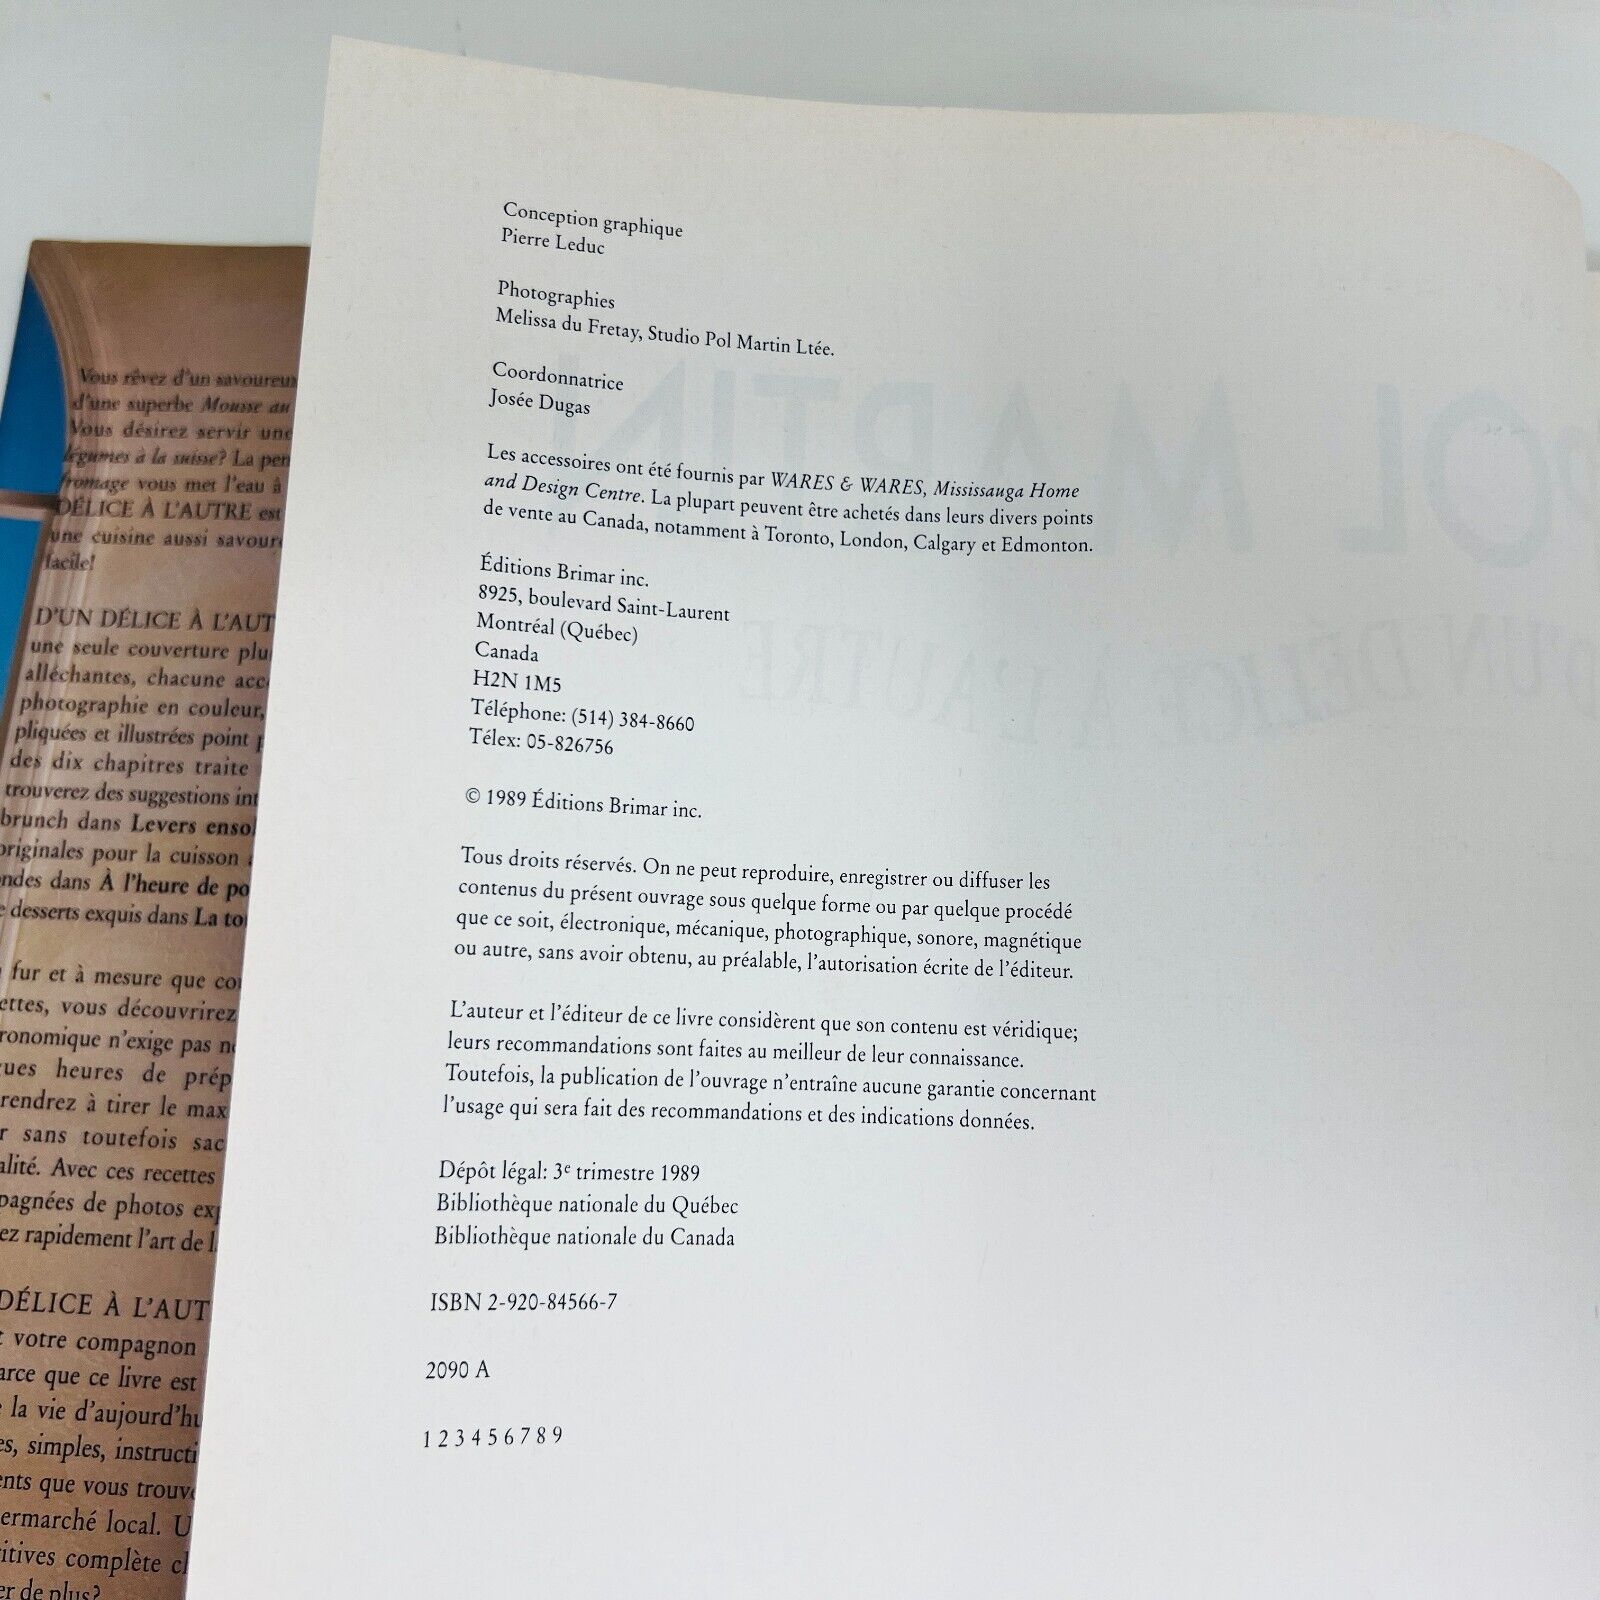 Vous rêvez d'un savoureux
d'une superbe Mousse au
Vous désirez servir une
légumes à la suisse? La
fromage vous met l'eau à
DÉLICE À L'AUTRE est
une cuisine aussi
facile!
D'UN DÉLICE À
une seule couverture
alléchantes, chacune
photographie en couleur,
pliquées et illustrées point
des dix chapitres traite
trouverez des suggestions
brunch dans Levers
originales pour la cuisson
dans À l'heure de
desserts exquis dans La
fur et à mesure que
vous découvrirez
n'exige pas
heures de
à tirer le
sans toutefois
Avec ces recettes
de photos
rapidement l'art de
DÉLICE À
votre compagnon
que ce livre est
la vie d'aujourd'hu
simples,
que vous
local.
complète
de plus?
Conception graphique
Pierre Leduc
Photographies
Melissa du Fretay, Studio Pol Martin Ltée.
Coordonnatrice
Josée Dugas
Les accessoires ont été fournis par WARES & WARES, Mississauga Home
and Design Centre. La plupart peuvent être achetés dans leurs divers points
de vente au Canada, notamment à Toronto, London, Calgary et Edmonton.
Éditions Brimar inc.
8925, boulevard Saint-Laurent
Montréal (Québec)
Canada
H2N 1M5
Téléphone: (514) 384-8660
Télex: 05-826756
© 1989 Éditions Brimar inc.
Tous droits réservés. On ne peut reproduire, enregistrer ou diffuser les
contenus du présent ouvrage sous quelque forme ou par quelque procédé
que ce soit, électronique, mécanique, photographique, sonore, magnétique
ou autre, sans avoir obtenu, au préalable, l'autorisation écrite de l'éditeur.
L'auteur et l'éditeur de ce livre considèrent que son contenu est véridique;
leurs recommandations sont faites au meilleur de leur connaissance.
Toutefois, la publication de l'ouvrage n'entraîne aucune garantie concernant
l'usage qui sera fait des recommandations et des indications données.
Dépôt légal: 3e trimestre 1989
Bibliothèque nationale du Québec
Bibliothèque nationale du Canada
ISBN 2-920-84566-7
2090 A
1 2 3 4 5 6 7 8 9